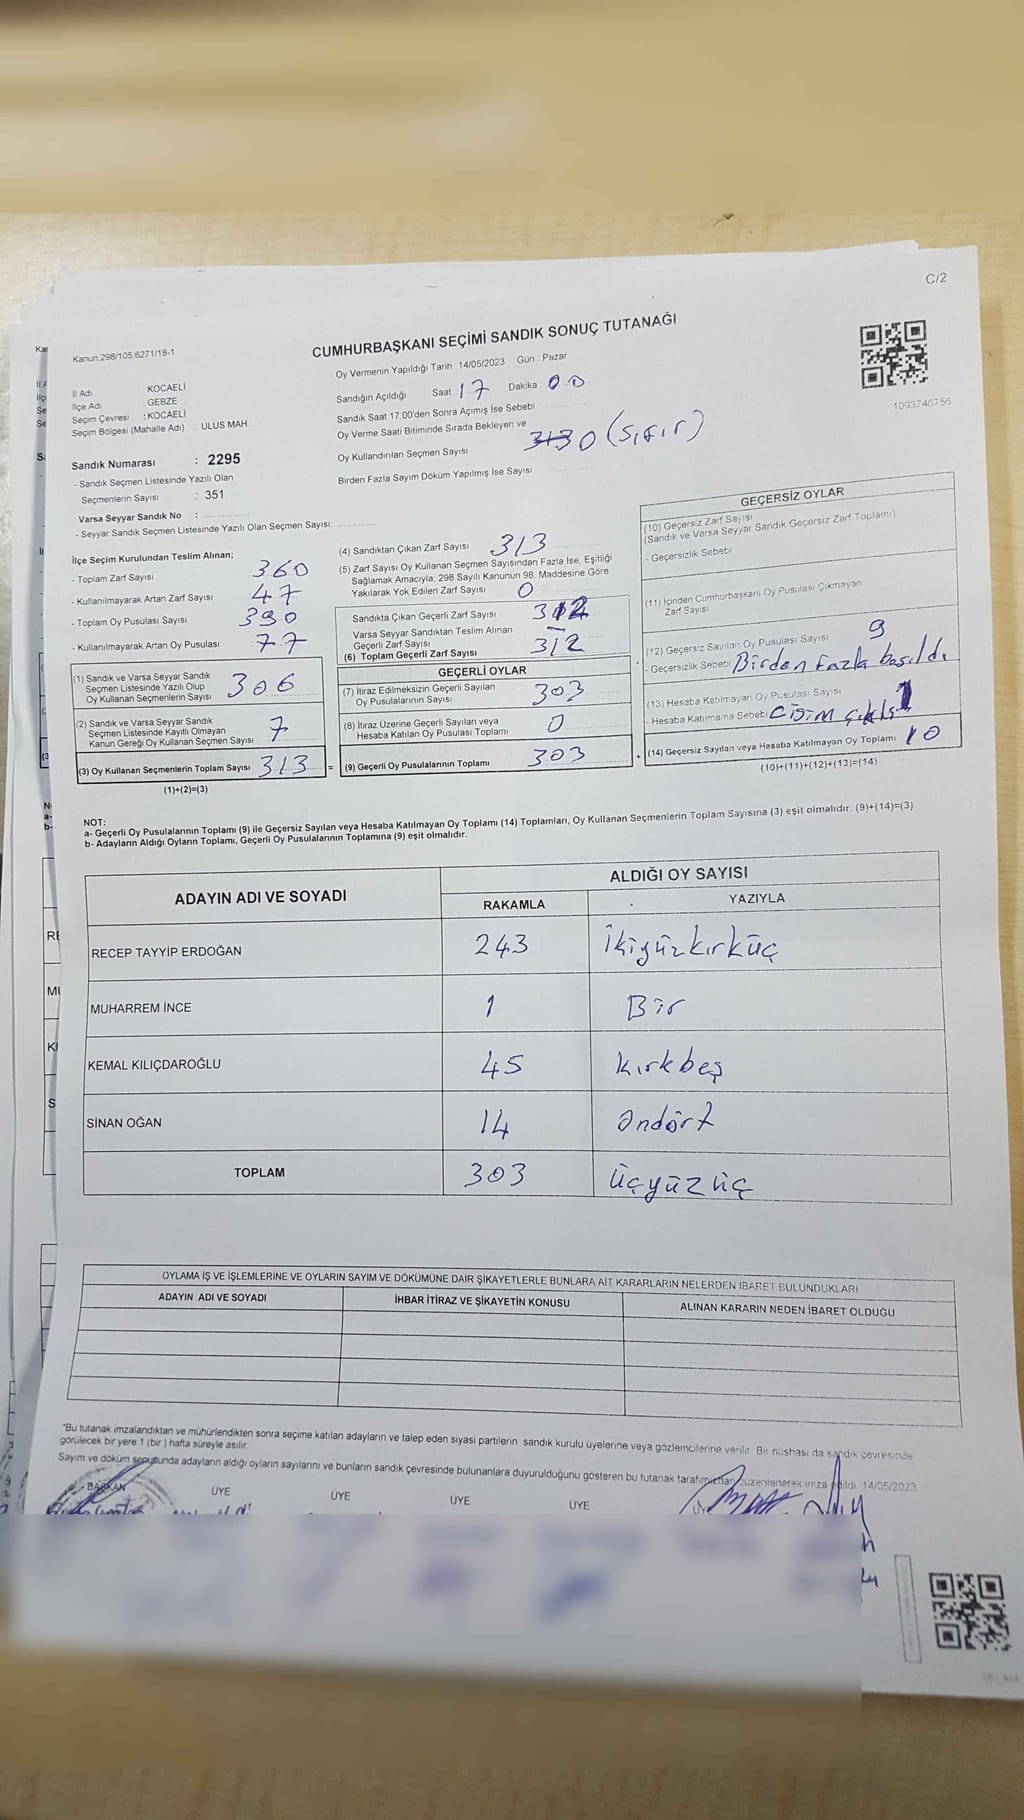 C/2
Kanun,298/105,6271/18-1
CUMHURBAŞKANI SEÇİMİ SANDIK SONUÇ TUTANAĞI
İl Adı KOCAELİ
İlçe Adı GEBZE
Seçim Çevresi : KOCAELİ
Seçim Bölgesi (Mahalle Adı) : ULUS MAH.
Oy Vermenin Yapıldığı Tarih : 14/05/2023 Gün : Pazar
Sandığın Açıldığı Saat : 17 Dakika : 00
Sandık Saat 17.00'den Sonra Açımış İse Sebebi :
Oy Verme Saati Bitiminde Sırada Bekleyen ve
Oy Kullandırılan Seçmen Sayısı 0 (Sıfır)
Birden Fazla Sayım Döküm Yapılmış İse Sayısı
1093746756
Sandık Numarası : 2295
- Sandık Seçmen Listesinde Yazılı Olan
Seçmenlerin Sayısı : 351
Varsa Seyyar Sandık No :
- Seyyar Sandık Seçmen Listesinde Yazılı Olan Seçmen Sayısı:
İlçe Seçim Kurulundan Teslim Alınan;
- Toplam Zarf Sayısı 360
- Kullanılmayarak Artan Zarf Sayısı 47
- Toplam Oy Pusulası Sayısı 390
- Kullanılmayarak Artan Oy Pusulası 77
(1) Sandık ve Varsa Seyyar Sandık
Seçmen Listesinde Yazılı Olup
Oy Kullanan Seçmenlerin Sayısı 306
(2) Sandık ve Varsa Seyyar Sandık
Seçmen Listesinde Kayıtlı Olmayan
Kanun Gereği Oy Kullanan Seçmen Sayısı 7
(3) Oy Kullanan Seçmenlerin Toplam Sayısı 313
(1)+(2)=(3)
(4) Sandıktan Çıkan Zarf Sayısı 313
(5) Zarf Sayısı Oy Kullanan Seçmen Sayısından Fazla İse, Eşitliği
Sağlamak Amacıyla; 298 Sayılı Kanunun 98. Maddesine Göre
Yakılarak Yok Edilen Zarf Sayısı 0
Sandıkta Çıkan Geçerli Zarf Sayısı 312
Varsa Seyyar Sandıktan Teslim Alınan
Geçerli Zarf Sayısı –
(6) Toplam Geçerli Zarf Sayısı 312
GEÇERLİ OYLAR
(7) İtiraz Edilmeksizin Geçerli Sayılan
Oy Pusulalarının Sayısı 303
(8) İtiraz Üzerine Geçerli Sayılan veya
Hesaba Katılan Oy Pusulası Toplamı 0
= (9) Geçerli Oy Pusulalarının Toplamı 303
GEÇERSİZ OYLAR
(10) Geçersiz Zarf Sayısı
(Sandık ve Varsa Seyyar Sandık Geçersiz Zarf Toplamı)
- Geçersizlik Sebebi
(11) İçinden Cumhurbaşkanı Oy Pusulası Çıkmayan
Zarf Sayısı
(12) Geçersiz Sayılan Oy Pusulası Sayısı 9
- Geçersizlik Sebebi Birden fazla basıldı
(13) Hesaba Katılmayan Oy Pusulası Sayısı 1
- Hesaba Katılmama Sebebi Cisim
+ (14) Geçersiz Sayılan veya Hesaba Katılmayan Oy Toplamı 10
(10)+(11)+(12)+(13)=(14)
NOT:
a- Geçerli Oy Pusulalarının Toplamı (9) ile Geçersiz Sayılan veya Hesaba Katılmayan Oy Toplamı (14) Toplamları, Oy Kullanan Seçmenlerin Toplam Sayısına (3) eşit olmalıdır. (9)+(14)=(3)
b- Adayların Aldığı Oyların Toplamı, Geçerli Oy Pusulalarının Toplamına (9) eşit olmalıdır.
ADAYIN ADI VE SOYADI ALDIĞI OY SAYISI
RAKAMLA YAZIYLA
RECEP TAYYİP ERDOĞAN 243 İkiyüzkırküç
MUHARREM İNCE 1 Bir
KEMAL KILIÇDAROĞLU 45 Kırkbeş
SİNAN OĞAN 14 Ondört
TOPLAM 303 Üçyüzüç
OYLAMA İŞ VE İŞLEMLERİNE VE OYLARIN SAYIM VE DÖKÜMÜNE DAİR ŞİKAYETLERLE BUNLARA AİT KARARLARIN NELERDEN İBARET BULUNDUKLARI
ADAYIN ADI VE SOYADI İHBAR İTİRAZ VE ŞİKAYETİN KONUSU ALINAN KARARIN NEDEN İBARET OLDUĞU
*Bu tutanak imzalandıktan ve mühürlendikten sonra seçime katılan adayların ve talep eden siyasi partilerin sandık kurulu üyelerine veya gözlemcilerine verilir. Bir nüshası da sandık çevresinde
görülecek bir yere 1 (bir) hafta süreyle asılır.
Sayım ve döküm sonucunda adayların aldığı oyların sayılarını ve bunların sandık çevresinde bulunanlara duyurulduğunu gösteren bu tutanak tarafımızdan düzenlenerek imza edildi. 14/05/2023
BAŞKAN ÜYE ÜYE ÜYE ÜYE ÜYE